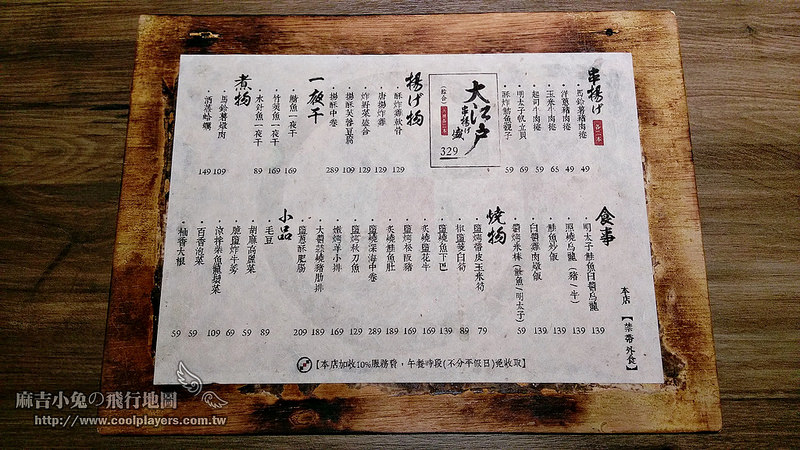 串揚げ
各二本
・馬鈴薯豬肉捲 49
・洋蔥豬肉捲 49
・玉米牛肉捲 65
・起司牛肉捲 59
・明太子帆立貝 69
・酥炸鮭魚親子 59
大江戶
串揚げ
盛
【綜合】
329
揚げ物
・酥炸雞軟骨 129
・唐揚炸雞 129
・炸野菜綜合 129
・揚酥芙蓉豆腐 109
・揚酥中卷 289
一夜干
・鯖魚一夜干 169
・竹筴魚一夜干 169
・水針魚一夜干 89
煮物
・馬鈴薯燉肉 109
・酒蒸蛤蠣 149
食事
・明太子鮭魚白醬烏龍 139
・照燒烏龍(豬/牛) 139
・鮭魚炒飯 139
・白醬雞肉燉飯 139
・醬烤米棒(鮭魚/明太子) 59
燒物
・鹽烤帶皮玉米筍 79
・椒鹽茭白筍 89
・鹽燒魚下巴 139
・炙燒鹽花牛 169
・鹽烤松阪豬 169
・炙燒鮭魚肚 189
・鹽燒深海中卷 289
・鹽烤秋刀魚 129
・嫩烤羊小排 169
・大醬蒜燒豬肋排 189
・鹽蔥酥肥腸 209
小品
・毛豆 89
・胡麻高麗菜 59
・脆鹽炸牛蒡 69
・涼拌柴魚龍鬚菜 109
・百香泡菜 59
・柚香大根 59
本店【禁帶外食】
【本店加收10%服務費,午餐時段(不分平假日)免收取】
麻吉小兔の飛行地圖
http://www.coolplayers.com.tw